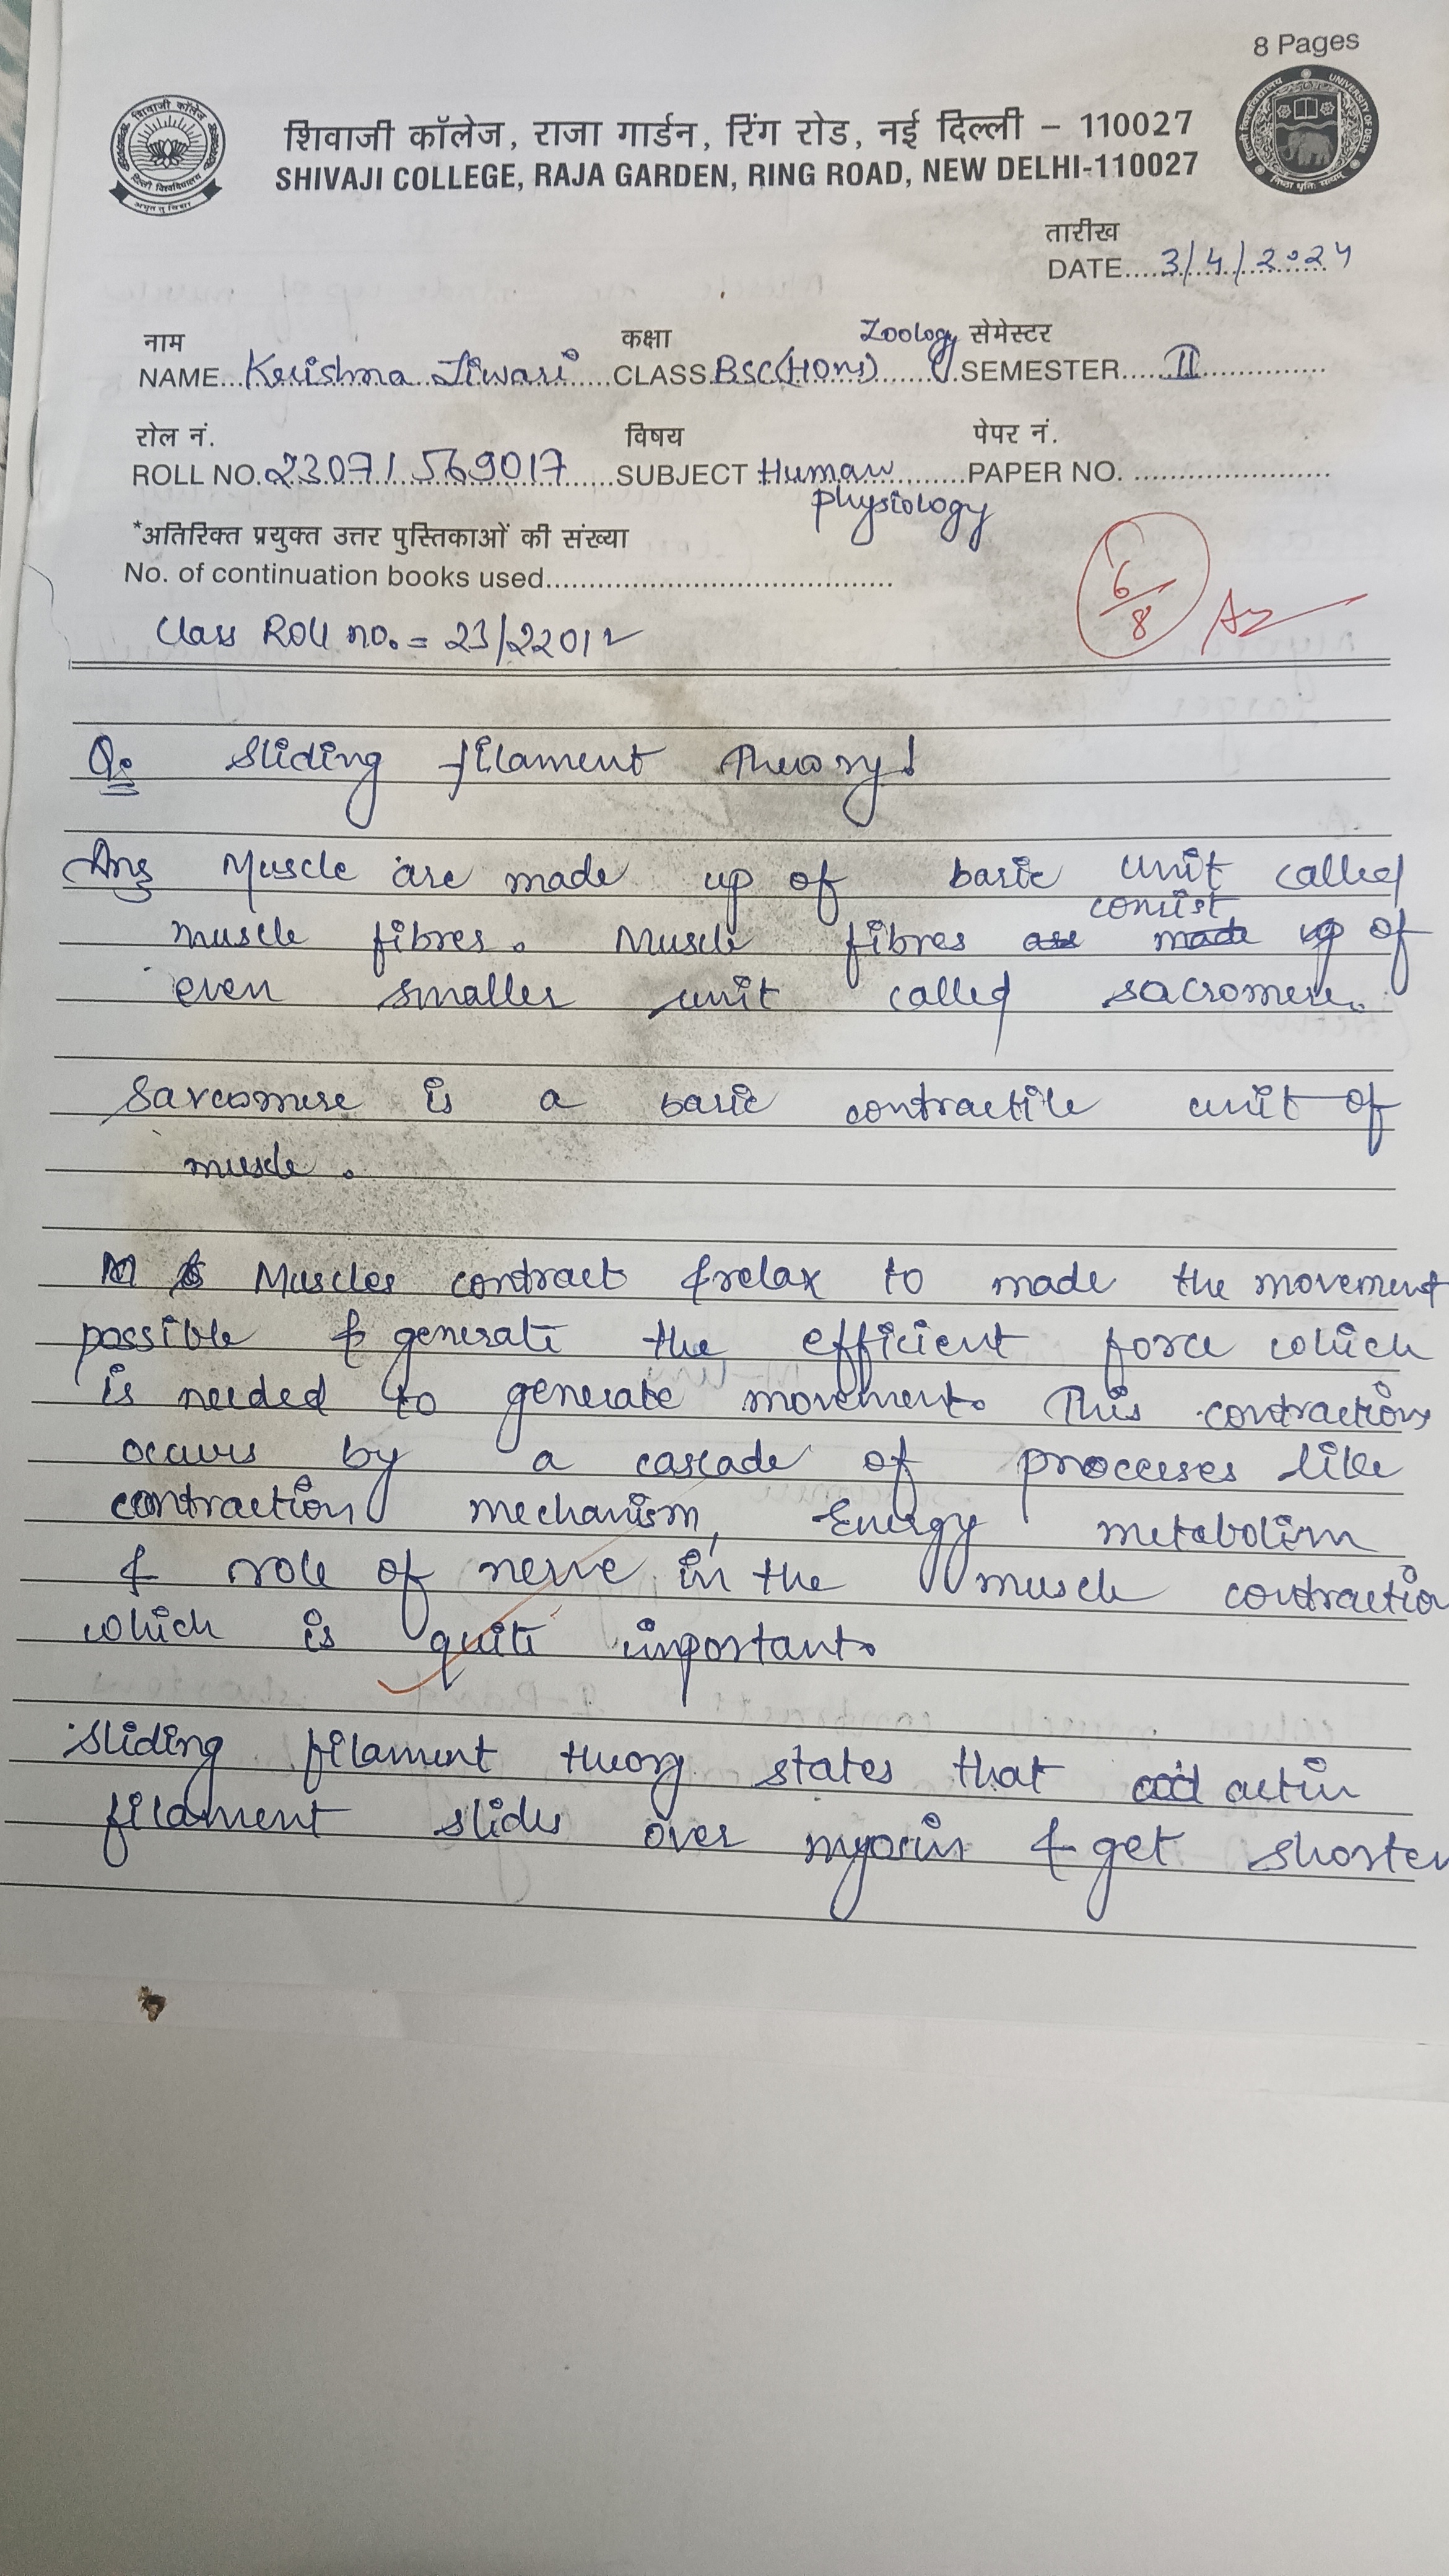 8 Pages
शिवाजी कॉलेज, राजा गार्डन, रिंग रोड, नई दिल्ली – 110027
SHIVAJI COLLEGE, RAJA GARDEN, RING ROAD, NEW DELHI-110027
तारीख
DATE....3/4/2024
नाम कक्षा Zoology सेमेस्टर
NAME...Krishma Tiwari....CLASS BSc(Hons).......SEMESTER.....II...............
रोल नं. विषय पेपर नं.
ROLL NO.23071569017......SUBJECT Human.........PAPER NO. ........................
physiology
*अतिरिक्त प्रयुक्त उत्तर पुस्तिकाओं की संख्या
No. of continuation books used............................................
6/8
Class Roll no. = 23/22012
Q: Sliding filament theory!
Ans Muscle are made up of basic unit called
consist
muscle fibres. Muscle fibres are made up of
even smaller unit called sacromere.
Sarcomere is a basic contractile unit of
muscle.
Muscles contract & relax to made the movement
possible & generate the efficient force which
is needed to generate movement. This contraction
occurs by a cascade of proccesses like
contraction mechanism, Energy metabolism
& role of nerve in the muscle contraction
which is quite important.
Sliding filament theory states that actin
filament slides over myosin & get shorten